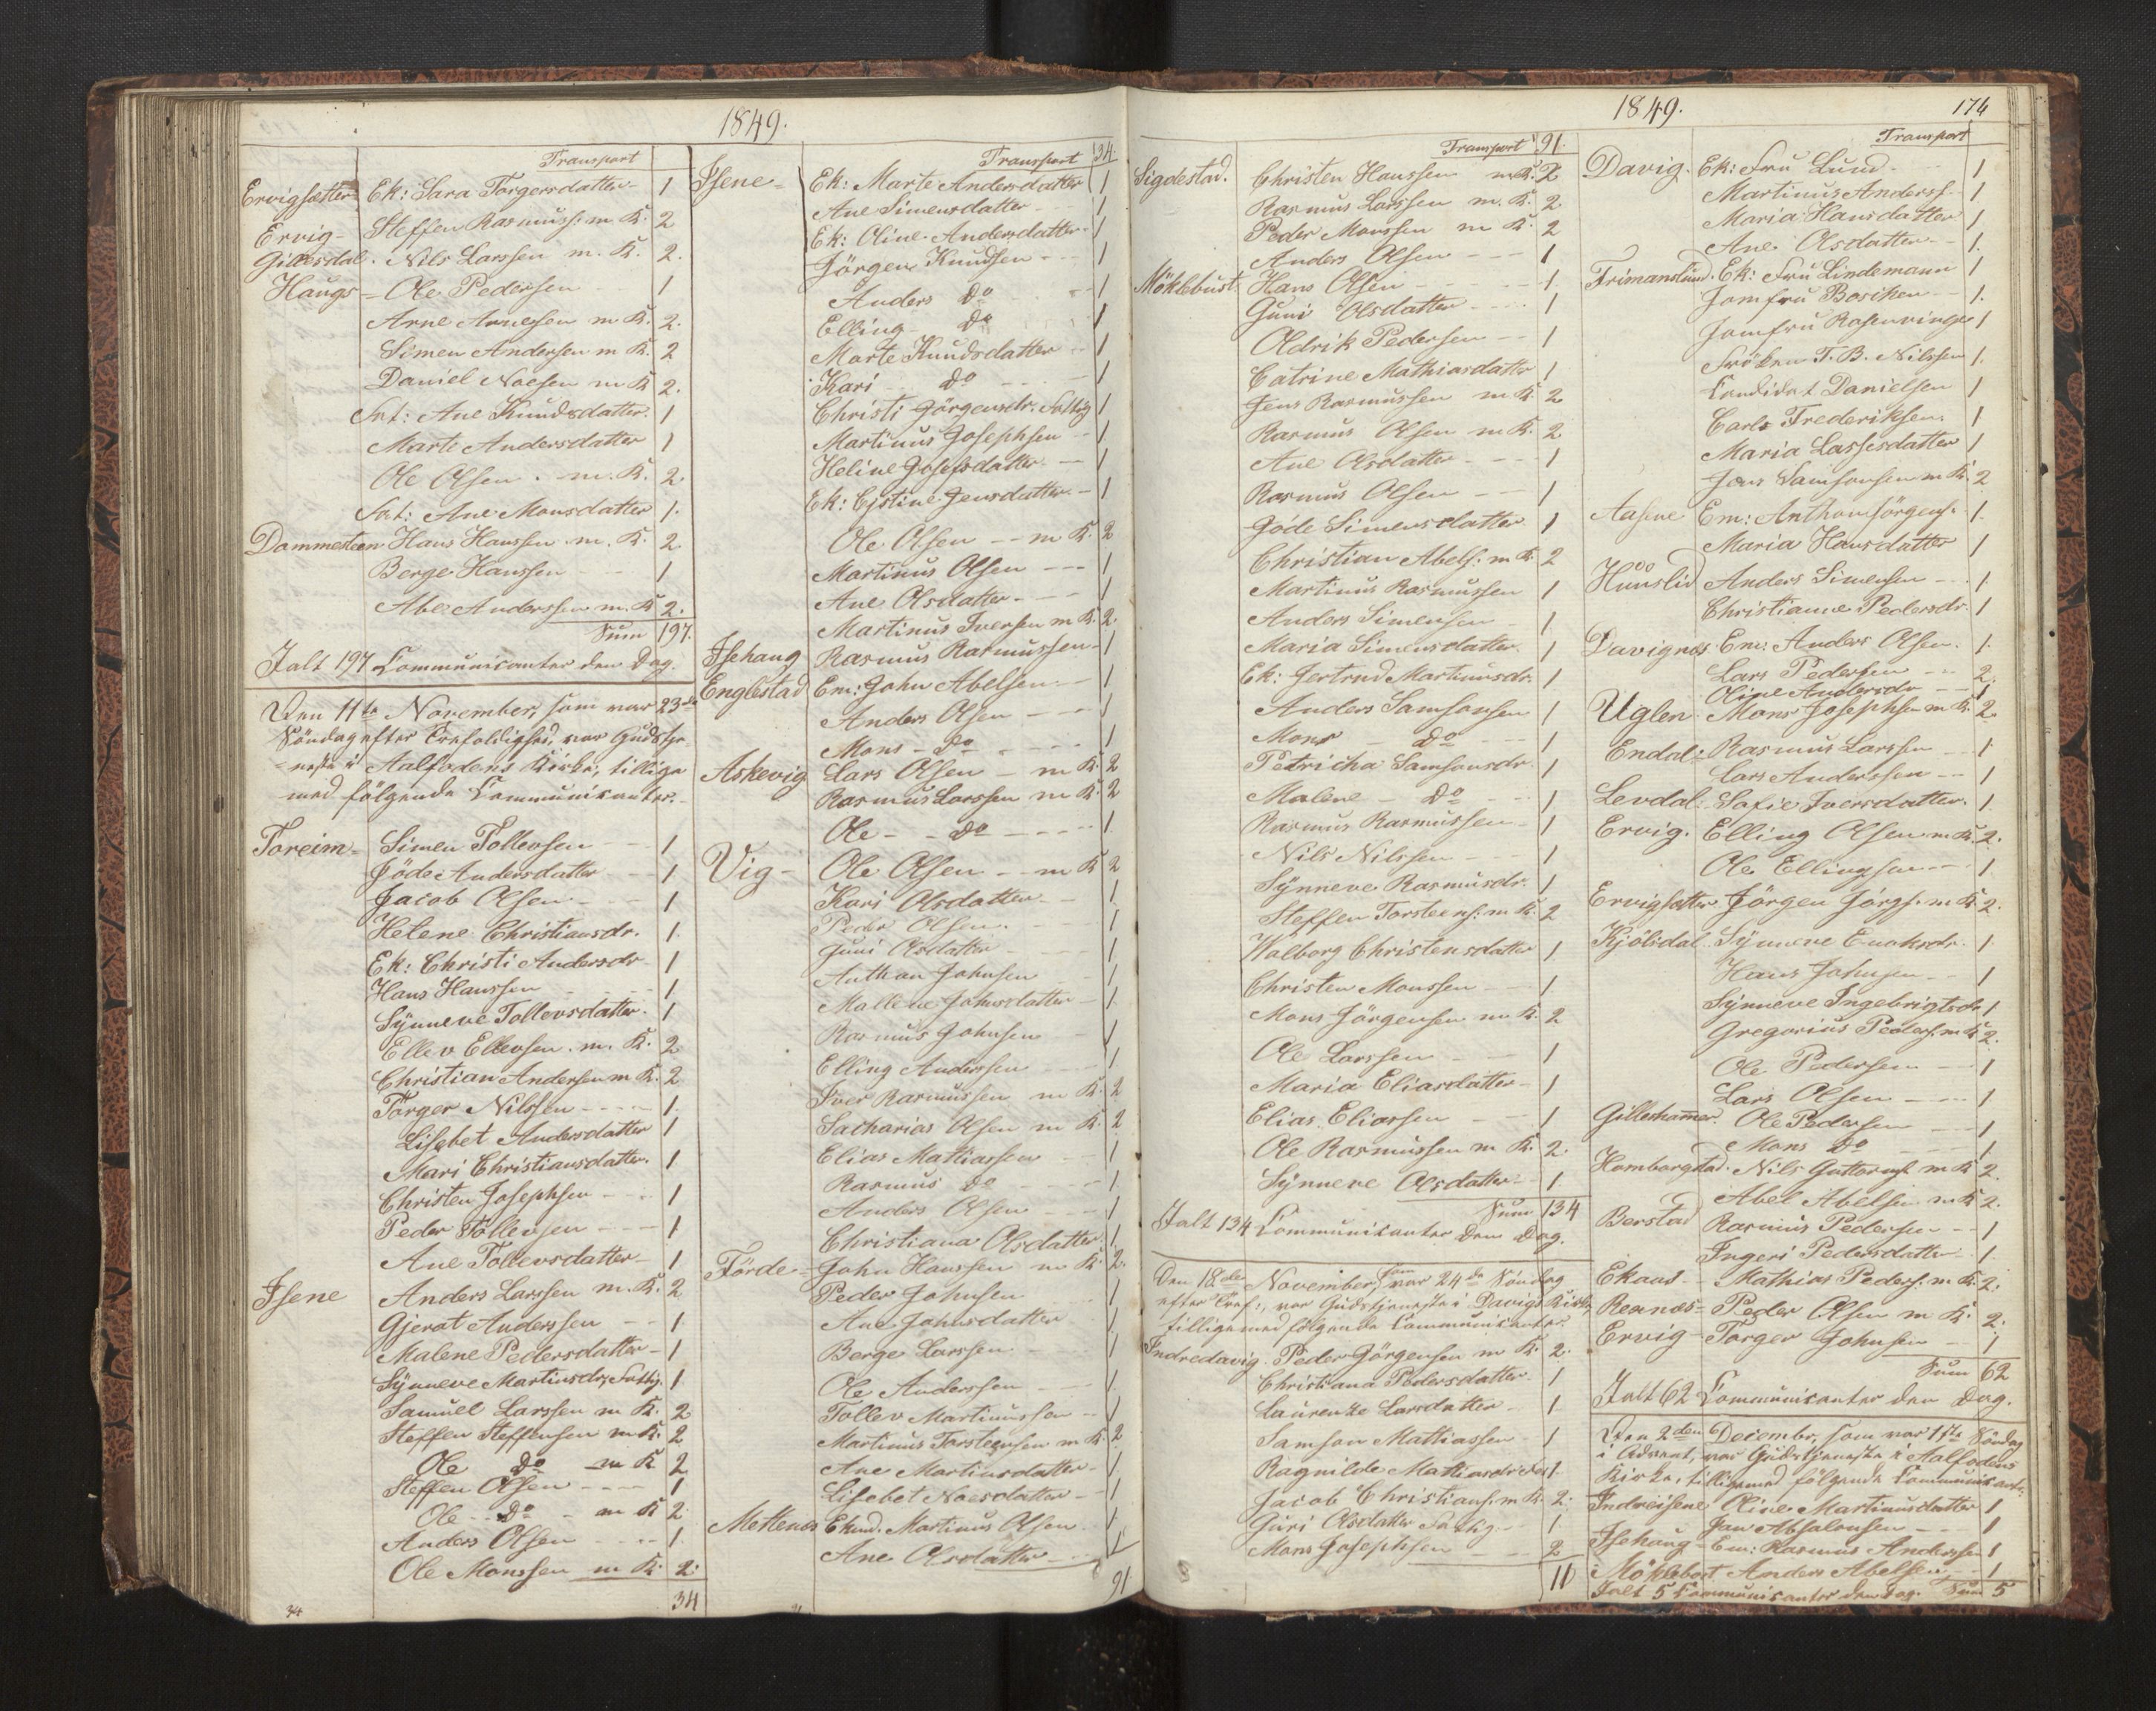 1849.
Transport
Ervigsætter= Ek: Sara Torgersdatter- 1
Ervig- Steffen Rasmuss: m K. 2
Gillesdal. Nils Larssen m. K. 2.
Haugs- Ole Pedersen 1
Arne Arnesen m K. 2.
Simen Andersen m K. 2
Daniel Noesen m K 2.
Fat: Ane Knudsdatter. 1
Marte Andersdatter 1
Ole Olsen. m. K. 2
Fat: Ane Monsdatter 1.
Dammesteen Hans Hanssen m. K. 2
Berge Hanssen 1
Abel Anderssen m. K 2.
Sum 197.
Ialt 197 Communicanter den Dag.
Den 11te November, som var 23de
Söndag efter Trefoldighed, var Gudstje-
neste i Aalfodens Kirke, tillige
med følgende Communicanter.
Foreim- Simen Tollevsen 1
Jöde Andersdatter 1
Jacob Olsen 1
Helene Christiansdr. 1
Ek: Christi Andersdr 1
Hans Hanssen 1
Synneve Tollevsdatter. 1
Ellev Ellevsen. m. K. 2
Christian Andersen m K. 2
Torger Nilssen 1.
Lisebet Andersdatter 1
Mari Christiansdatter. 1
Christen Josephsen 1
Peder Tollevsen 1
Ane Tollevsdatter- 1
Isene Anders Larssen m. K. 2
Gjerot Anderssen 1
Malene Pedersdatter- 1
Synneve Martinsdr, Fattig. 1
Samuel Larssen m K. 2
Steffen Steffensen m K. 2
Ole Do m K 2
Steffen Olsen 1
Ole Do m K 2
Anders Olsen 1.
Ole Monssen m K. 2.
34
34
Transport 34.
Isene- Ek: Marte Andersdatter 1
Ane Simensdatter 1
Ek: Oline Andersdatter. 1
Jörgen Knudsen 1
Anders Do 1
Elling Do 1
Marte Knudsdatter 1
Kari Do 1
Christi Jörgensdr. Fattig 1
Martinus Josephsen 1
Heline Josefsdatter. 1
Ek: Cistine Jensdatter. 1
Ole Olsen m K. 2
Martinus Olsen 1
Ane Olsdatter 1
Martinus Iversen m K. 2.
Isehaug Rasmus Rasmussen. 1
Englestad Em: John Abelsen 1
Anders Olsen 1
Mons Do 1
Askevig Lars Olsen m K. 2
Rasmus Larssen m K. 2
Ole Do 1
Vig- Ole Olsen m K 2
Kari Olsdatter 1
Peder Olsen. 1
Guni Olsdatter 1
Anthon Johnsen 1
Mallene Johnsdatter 1
Rasmus Johnsen 1
Elling Anderssen 1
Iver Rasmussen m K. 2
Sacharias Olsen m K. 2
Elias Mathiassen 1
Rasmus Do 1
Anders Olsen 1
Christiana Olsdatter 1
Förde- John Hanssen m K 2.
Peder Johnsen 1
Ane Johnsdatter 1
Berge Larssen 1
Ole Anderssen 1
Tollev Martinussen 1
Martinus Torsteensen m K. 2
Ane Martinsdatter 1
Lisebet Noesdatter 1
Mettenes Ekmd. Martinus Olsen 1
Ane Olsdatter 1
91
1849.
174
Transport 91.
Sigdestad. Christen Hanssen m K. 2
Rasmus Larssen m. K. 2.
Peder Monssen m K. 2
Anders Olsen 1
Möklebust Hans Olsen 1.
Guni Olsdatter 1
Oldrik Pedersen 1
Catrine Mathiasdatter 1
Jens Rasmussen m K. 2
Rasmus Olsen m K. 2
Ane Olsdatter 1
Rasmus Olsen 1
Jöde Simensdatter 1
Christian Abels: m K. 2
Martinus Rasmussen 1
Anders Simensen 1
Maria Simensdatter. 1
Ek: Gertrud Martinusdr. 1
Anders Samsonsen 1
Mons Do 1
Petricha Samsonsdr. 1
Malene Do 1
Rasmus Rasmussen 1
Nils Nilssen 1
Synneve Rasmusdr. 1
Steffen Torsteens: m K. 2
Walborg Christensdatter 1
Christen Monssen 1
Mons Jörgensen m K. 2
Ole Larssen 1
Maria Eliasdatter 1
Elias Eliassen 1
Ole Rasmussen m K. 2.
Synneve Olsdatter 1
Sum 134
Ialt 134 Communicanter den Dag.
Den 18de November, som var 24de Söndag
efter Tref:, var Gudstjeneste i Davigs Kirke,
tilligemed følgende Communicanter.
Indredavig. Peder Jörgensen m K. 2.
Christiana Pedersdatter. 1
Laurentze Larsdatter 1
Samson Mathiassen 1
Ragnilde Mathiasdr 1.
Jacob Christians. m K. 2.
Guri Olsdatter Fattig. 1
Mons Josephsen 2
11
Transport
Davig. Ek: Fru Lund 1
Martinus Anderss. 1
Maria Hansdatter 1
Ane Olsdatter 1.
Frimanslund. Ek: Fru Lindemann 1
Jomfru Bosiken 1.
Jomfru Rosenvinge 1
Fröken T. B. Nilssen 1.
Candidat Danielsen 1
Carl Frederiksen. 1
Maria Lassesdatter 1
Jens Samsonsen m K. 2
Aasene Em: Anthon Jörgens. 1.
Maria Hansdatter 1
Huuslid Anders Simensen 1.
Christianne Pedersdr. 1
Davignæs Em: Anders Olsen. 1.
Lars Pedersen 2.
Oline Andersdr 1
Uglen Mons Josephsen m K. 2
Endal: Rasmus Larssen 1
Lars Anderssen 1
Levdal: Sofie Iversdatter. 1.
Ervig. Elling Olsen m K. 2.
Ole Ellingsen 1
Ervigsætter Jörgen Jörgs: m K. 2.
Kjölsdal Synneve Enoksdr. 1.
Hans Johnsen 1
Synneve Ingebrigtsdr 1
Gregorius Peders: m K 2.
Ole Pedersen 1
Lars Olsen 1
Gilleshamer. Ole Pedersen 1
Mons Do 1
Homborgstad. Nils Guttorms. m K 2.
Abel Abelsen m K 2.
Berstad Rasmus Pedersen 1
Ingeri Pedersdatter 1.
Ekaas Mathias Peders: m K. 2.
Rennæs= Peder Olsen m K. 2.
Ervig- Torger Johnsen 1
Sum 62
Ialt 62 Communicanter den Dag.
Den 2den December, som var 1ste Söndag
i Advent, var Gudstjeneste i Aalfodens
Kirke, tilligemed følgende Communicanter.
Indreisene: Oline Martinusdatter 1
Jan Absalonsen 1
Isehaug- Em: Rasmus Anderssen 1
Möklebost Anders Abelsen 1
Ialt 5 Communicanter den Dag. Sum 5